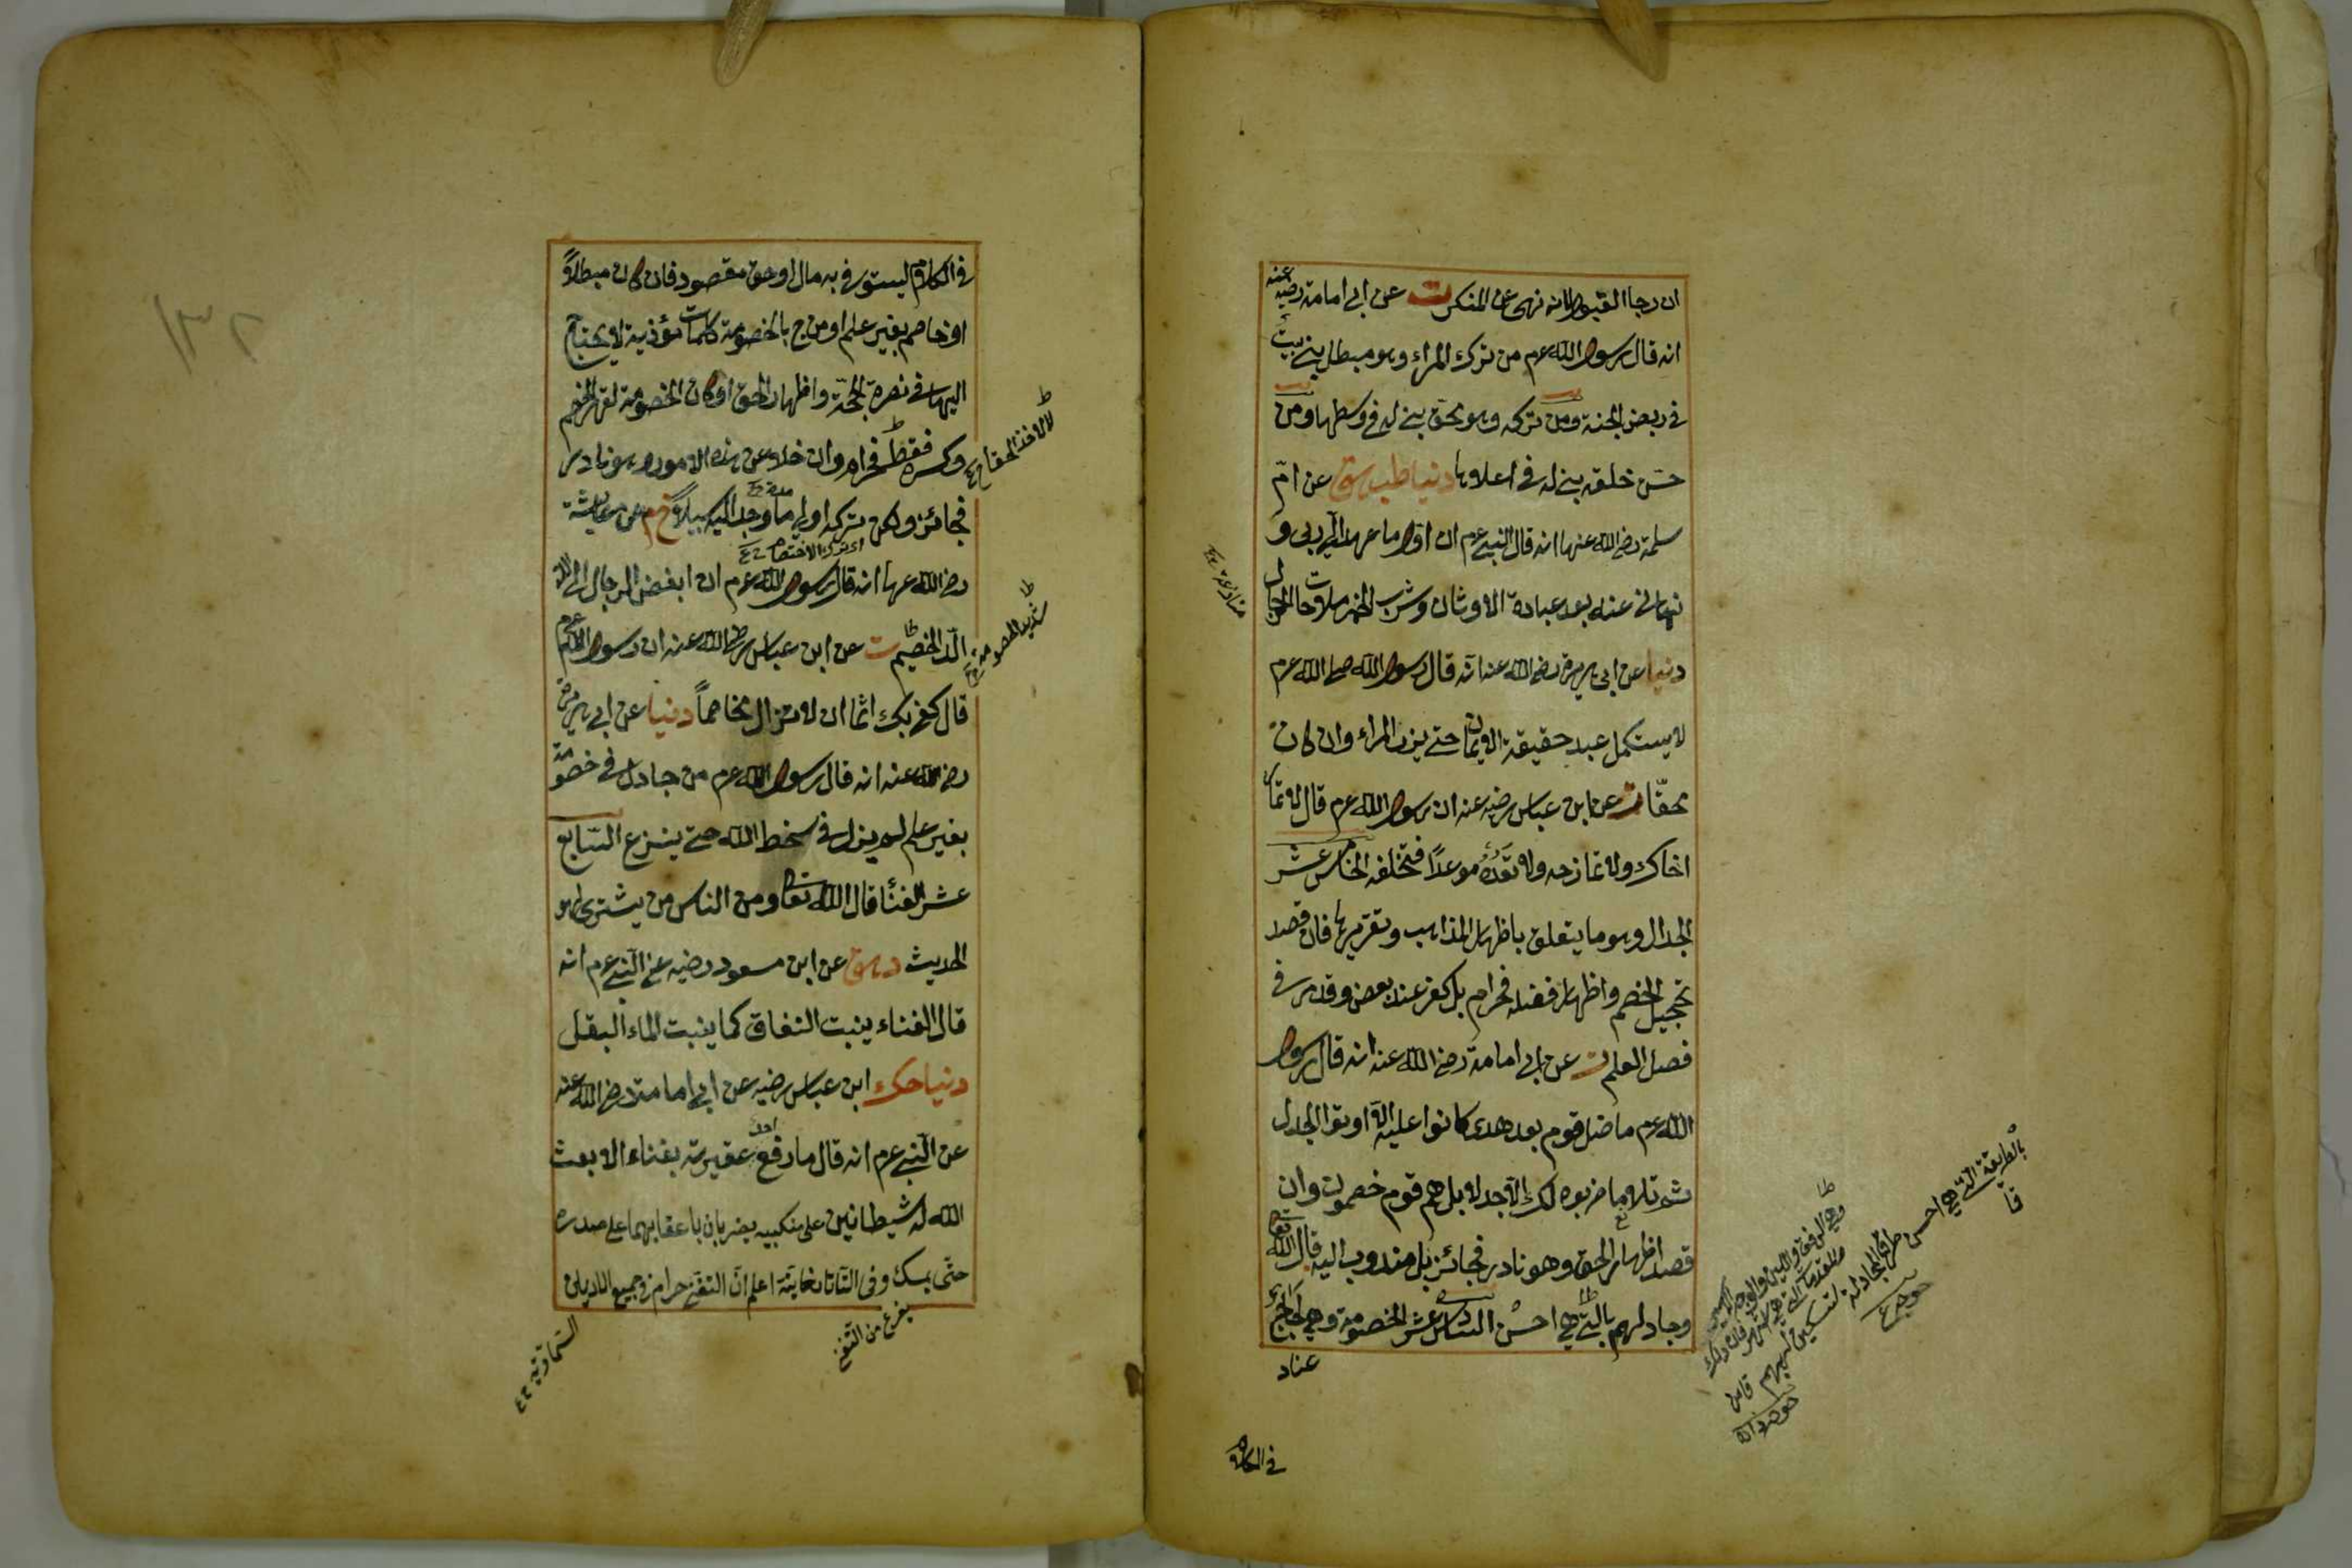 ان رجا القبول لانه نهى عن المنكر ت عن ابى امامة رضيه عنه
انه قال رسول الله عم من ترك المراء وهو مبطل بنى بيت
فى ربض الجنة ومن تركه وهو محق بنى له فى وسطها ومن
حسن خلقه بنى له فى اعلاها دنيا طب هق عن امّ
سلمة رضى الله عنها انه قال النبى عم ان اول ما عهد الى ربى و
نهانى عنه بعد عبادة الاوثان وشرب الخمر ملاحات الرجال
دنيا عن ابى هريرة رضى الله عنه انه قال رسول الله صلى الله عم
لا يستكمل عبد حقيقة الايمان حتى يذر المراء وان كان
محقّا ت عن ابن عباس رضيه عنه ان رسول الله عم قال لا تمار
اخاك ولا تمازحه ولا تعده موعدًا فتخلفه الخامس عشر
الجدال وهو ما يتعلق باظهار المذاهب وتقريرها فان قصد
تخجيل الخصم واظهار فضله فحرام بل كفر عند بعض وقد مر فى
فصل العلم ت عن ابى امامة رضى الله عنه انه قال رسول
الله عم ما ضل قوم بعد هدى كانوا عليه الا اوتوا الجدل
ثم تلا ما ضربوه لك الا جدلا بل هم قوم خصمون وان
قصد اظهار الحق وهو نادر فجائز بل مندوب اليه قال الله تعا
وجادلهم بالتى هى احسن السادس عشر الخصومة وهى لجاج
عناد
فى الكلام
بالطريقة التى هى احسن طرق المجادلة
فى الكلام ليستوفى به مال او حق مقصود فان كان مبطلاً
او خاصم بغير علم او مزج بالخصومة كلمات مؤذية لا يحتاج
اليها فى نصرة الحجّة واظهار الحق او كان الخصومة لقهر الخصم
وكسره فقط فحرام وان خلا عن هذه الامور وهو نادر
فجائز ولكن تركه اولى ما وجد اليه سبيلاً خ م عن عايشة
اى ترك الاختصام
رضى الله عنها انه قال رسول الله عم ان ابغض الرجال الى الله
الدّ الخصيم ت عن ابن عباس رضى الله عنه ان رسول الله عم
شديد الخصومة
قال كفى بك اثما ان لا تزال مخاصماً دنيا عن ابى هريرة
رضى الله عنه انه قال رسول الله عم من جادل فى خصومة
بغير علم لم يزل فى سخط الله حتى ينزع السّابع
عشر الغناء قال الله تعا ومن الناس من يشترى لهو
الحديث د هق عن ابن مسعود رضيه عن النّبى عم انه
قال الغناء ينبت النفاق كما ينبت الماء البقل
دنيا حك ابن عباس رضيه عن ابى امامة رضى الله عنه
عن النّبى عم انه قال ما رفع احد عقيرته بغناء الا بعث
الله له شيطانين على منكبيه يضربان باعقابهما على صدره
حتّى يمسك وفى التاتارخانيّة اعلم انّ التغنّى حرام فى جميع الاديان
يفرغ من التغنى
السماوية
١٣٢